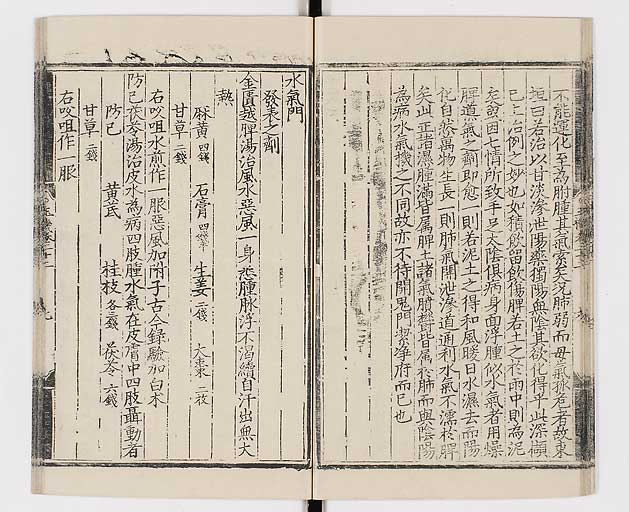 不能運化至為胕腫其氣索矣況肺弱而母氣㧞危者故東
垣曰若治以甘淡滲泄陽藥獨陽無陰其欲化得乎此深㯋
已上治例之妙也如積飲留飲傷脾若土之於雨中則為泥
矣黃酉七情所致手足太陰俱病身面浮腫似水氣者用燥
脾道氣之劑即愈一則若泥土之得和風暖日水濕去而陽
化自然萬物生長一則肺氣開泄滲道通利水氣不濡於脾
矣此正諸濕腫滿皆屬脾土諸氣膹鬱皆屬於肺而與陰陽
為病水氣機之不同故亦不待開鬼門潔淨府而已也
水氣門
發表之劑
金匱越脾湯治風水惡風一身悉腫脉浮不渴續自汗出無大
熱
麻黃 四錢 石膏 生姜 三錢 大棗 二枚
甘草 二錢
右㕮咀水煎作一服惡風加附子古今錄驗加白术
防已茯苓湯治皮水為病四肢腫水氣在皮膚中四肢聶動者
防已 黃芪 桂枝 各三錢 茯苓 六錢
甘草 二錢
右㕮咀作一服